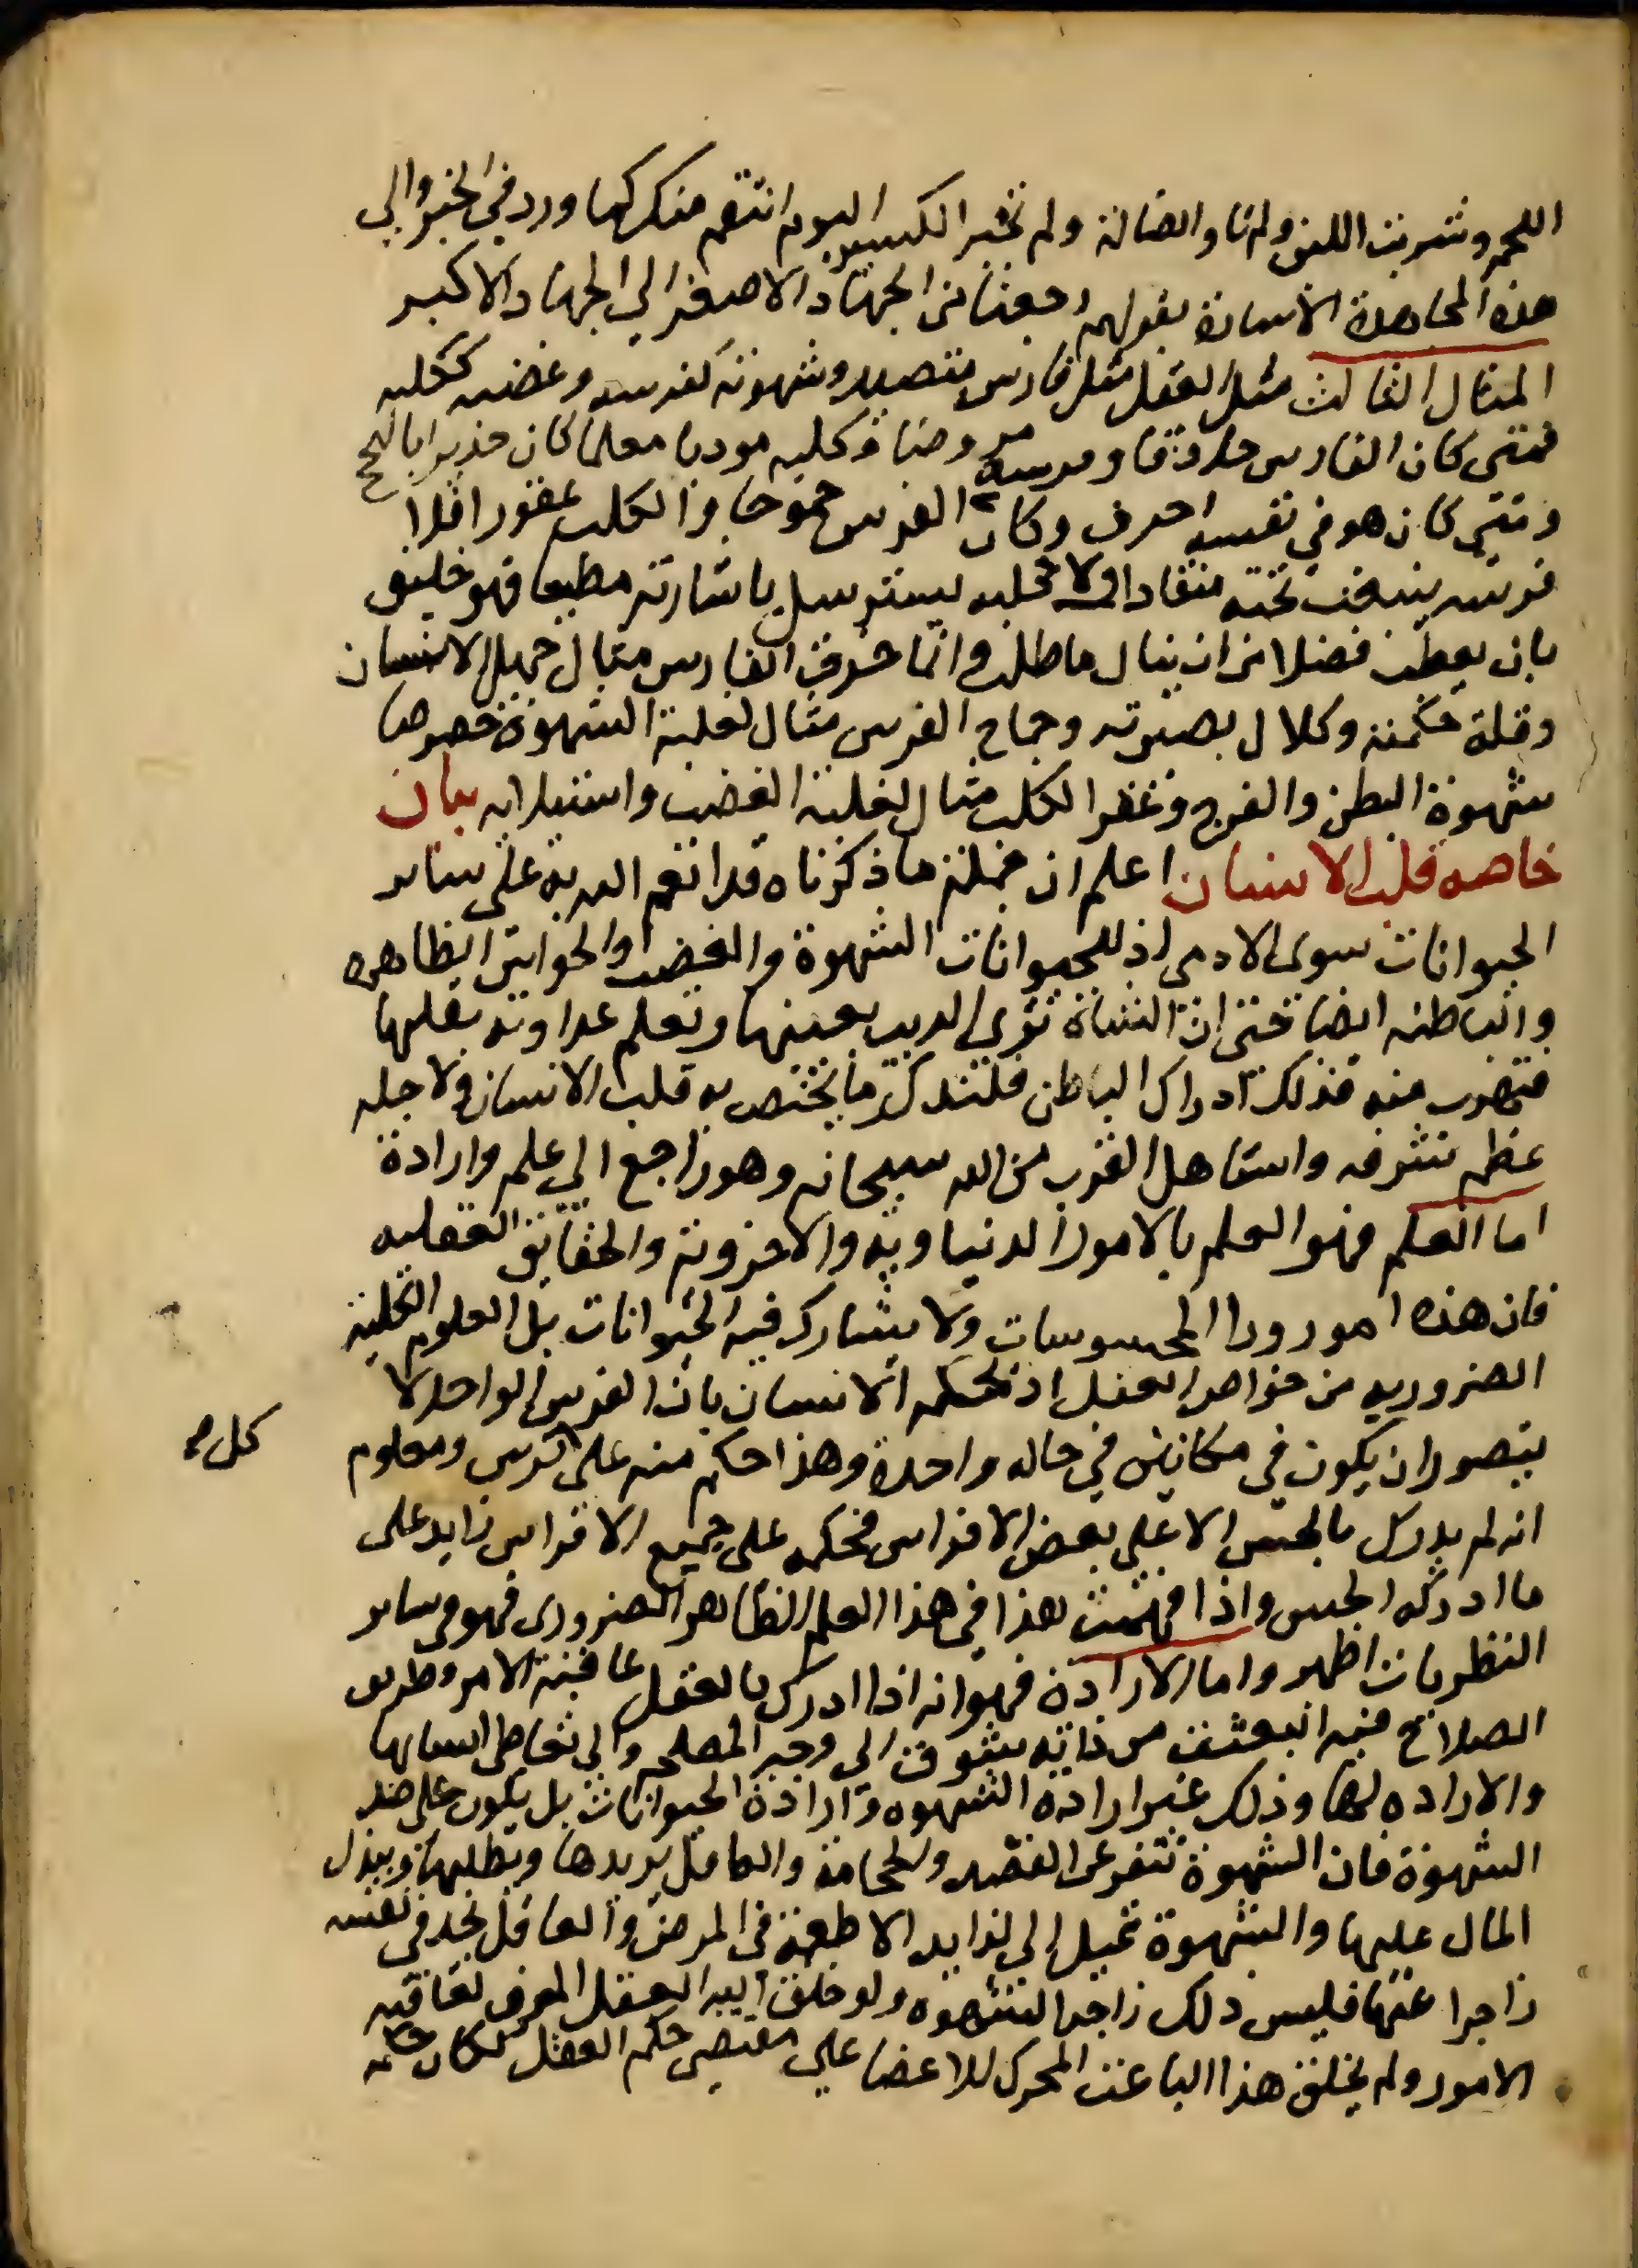 اللحم وشربت اللبن ولم تاو الضالة ولم تجبر الكسير اليوم انتقم منك كما ورد في الخبر والي
هذه المجاهدة الاشارة بقولهم رجعنا من الجهاد الاصغر الي الجهاد الاكبر
المثال الثالث مثل العقل مثل فارس متصيد وشهوته كفرسه وغضبه ككلبه
فمتى كان الفارس حاذقا وفرسه مروضا وكلبه مودبا معلما كان جديرا بالنجح
ومتي كان هو في نفسه اخرق وكان الفرس جموحا والكلب عقورا فلا
فرسه ينبعث تحته منقادا ولا كلبه يسترسل باشارته مطيعا فهو خليق
بان يعطب فضلا من ان ينال ما طلب وانما خرق الفارس مثال جهل الانسان
وقلة حكمته وكلال بصيرته وجماح الفرس مثال لغلبة الشهوة خصوصا
شهوة البطن والفرج وعقر الكلب مثال لغلبة الغضب واستيلايه بيان
خاصه قلب الانسان اعلم ان جملة ما ذكرناه قد انعم الله به على ساير
الحيوانات سوى الادمي اذ للحيوانات الشهوة والغضب والحواس الظاهره
والباطنه ايضا حتى ان الشاة ترى الديب بعينها وتعلم عداوته بقلبها
فتهرب منه فذلك ادراك الباطن فلنذكر ما يختص به قلب الانسان ولاجله
عظم شرفه واستاهل القرب من الله سبحانه وهو راجع الي علم وارادة
اما العلم فهو العلم بالامور الدنياويه والاخروية والحقايق العقليه
فان هذه امور ورا المحسوسات ولا يشارك فيه الحيوانات بل العلوم الكلية
الضروريه من خواص العقل اذ يحكم الانسان بان الفرس الواحد لا
يتصور ان يكون في مكانين في حاله واحدة وهذا حكم منه على فرس ومعلوم
كل
انه لم يدرك بالحس الا علي بعض الافراس فحكمه على جميع الافراس زايد على
ما ادركه الحس واذا فهمت هذا في هذا العلم الظاهر الضروري فهو في ساير
النظريات اظهر واما الارادة فهو انه اذا ادرك بالعقل عاقبة الامر وطريق
الصلاح فيه انبعث من ذاته شوق الى وجه المصلحه والي تعاطي اسبابها
والاراده لها وذلك غير ارادة الشهوه وارادة الحيوانات بل يكون على ضد
الشهوة فان الشهوة تنفر عن الفصد والحجامة والعاقل يريدها ويطلبها ويبذل
المال عليها والشهوة تميل الي لذايذ الاطعمة في المرض والعاقل يجد في نفسه
زاجرا عنها فليس ذلك زاجر الشهوه ولو خلق الله العقل المعرف لعاقبه
الامور ولم يخلق هذا الباعث المحرك للاعضا علي مقتضى حكم العقل لكان حكم